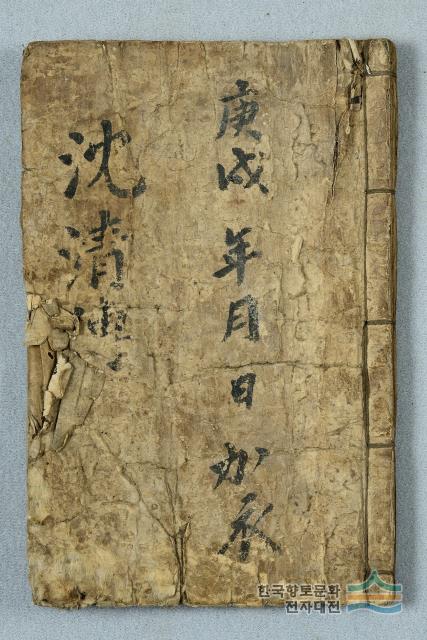 庚戌年月日
沈清傳
한국향토문화
전자대전